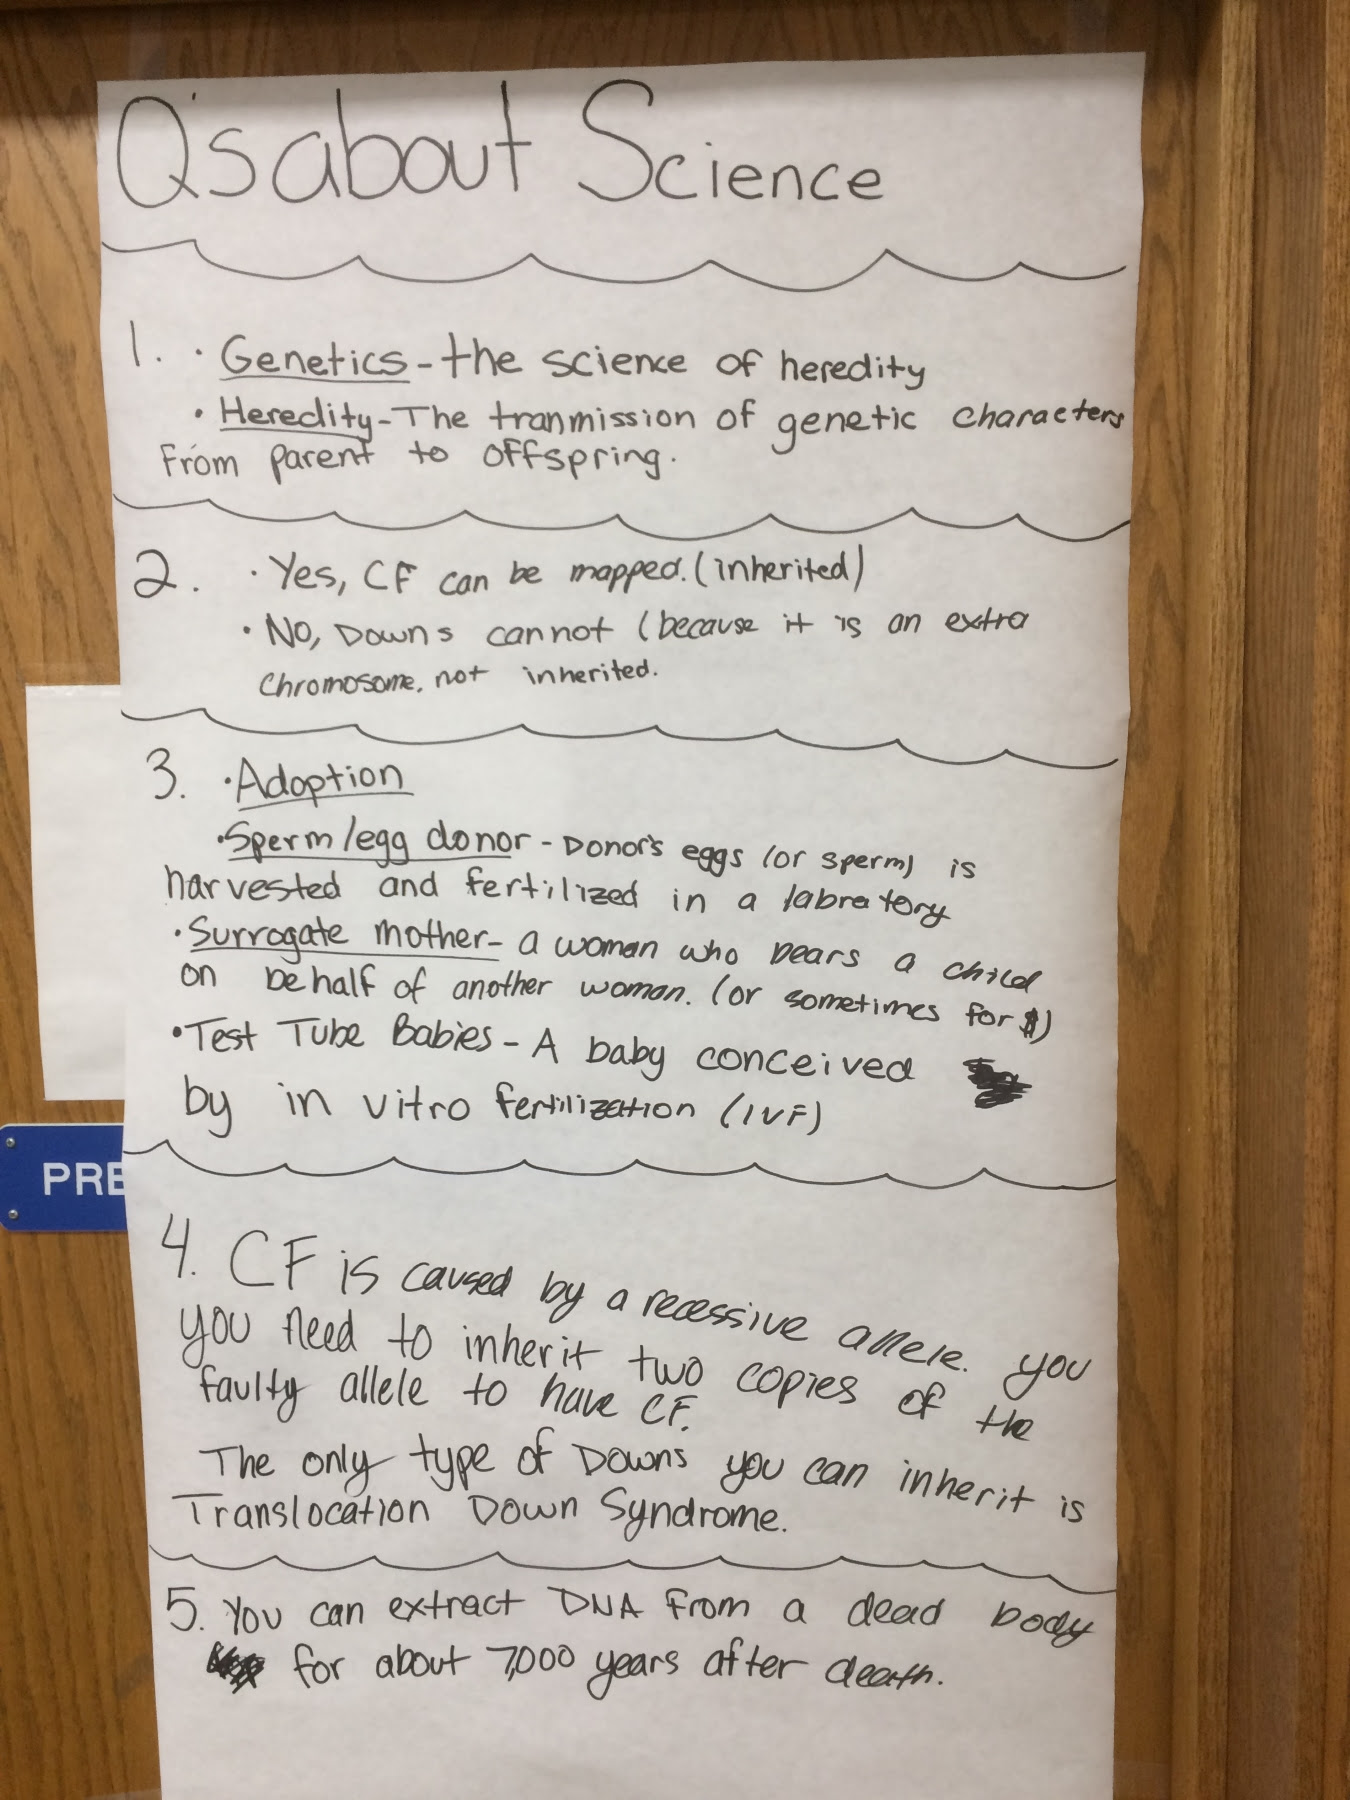 Q'sabout Science
1. · Genetics - the science of heredity
· Heredity - The tranmission of genetic characters
from parent to offspring.
2. · Yes, CF can be mapped. (inherited)
· No, Downs cannot (because it is an extra
chromosome, not inherited.
3. · Adoption
· Sperm/egg donor - Donor's eggs (or sperm) is
harvested and fertilized in a labratory
· Surrogate mother - a woman who bears a child
on behalf of another woman. (or sometimes for $)
· Test Tube Babies - A baby conceived
by in vitro fertilization (IVF)
PRE
4. CF is caused by a recessive allele. you
you need to inherit two copies of the
faulty allele to have CF.
The only type of Downs you can inherit is
Translocation Down Syndrome.
5. You can extract DNA from a dead body
for about 7,000 years after death.